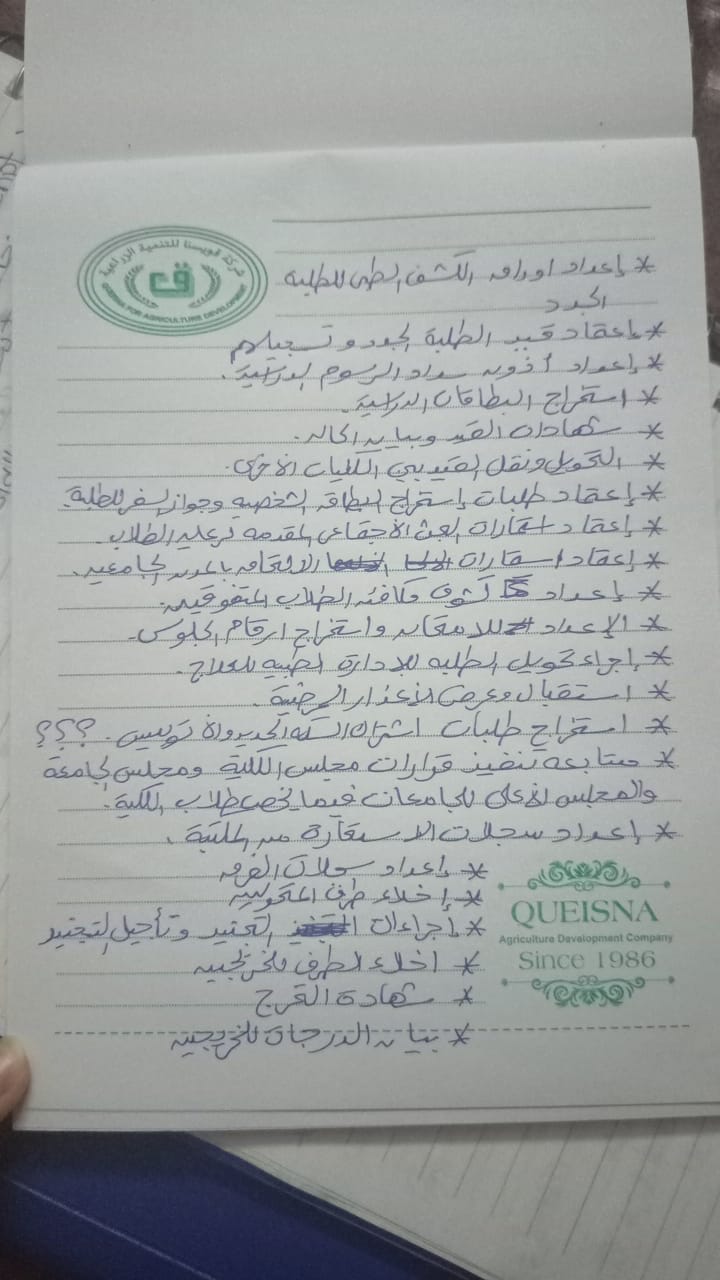 شركة قويسنا للتنمية الزراعية
ق
QUEISNA FOR AGRICULTURE DEVELOPMENT
* إعداد اوراق الكشف الطبي للطلبة
الجدد
* إعتماد قيد الطلبة الجدد وتسجيلهم
* إعداد أذون سداد الرسوم الدراسية.
* استخراج البطاقات الدراسية.
* شهادات القيد وبيان الحاله.
* التحويل ونقل القيد بين الكليات الأخرى.
* إعتماد طلبات إستخراج البطاقه الشخصيه وجواز السفر للطلبة.
* إعتماد استمارات البحث الأجتماعى المقدمه من الطلاب.
* إعتماد استمارات الالتحاق بالمدن الجامعيه.
* إعداد كشوف مكافئه الطلاب المتفوقين.
* الإعداد للامتحان واستخراج ارقام الجلوس.
* إجراء تحويل الطلبه للإدارة الطبيه للعلاج.
* استقبال وعرض الأعذار المرضية.
* استخراج طلبات اشتراك السكه الحديد والأتوبيس. ؟؟؟
* متابعه تنفيذ قرارات مجلس الكلية ومجلس الجامعة
والمجلس الأعلى للجامعات فيما يخص طلاب الكلية.
* إعداد سجلات الاستعارة من المكتبة.
* إعداد سجلات الفرق
* إخلاء طرف المتحولين
* إجراءات التجنيد وتأجيل التجنيد
* اخلاء الطرف للخريجين
* شهادة التخرج
* بيان الدرجات للخريجين
QUEISNA
Agriculture Development Company
Since 1986